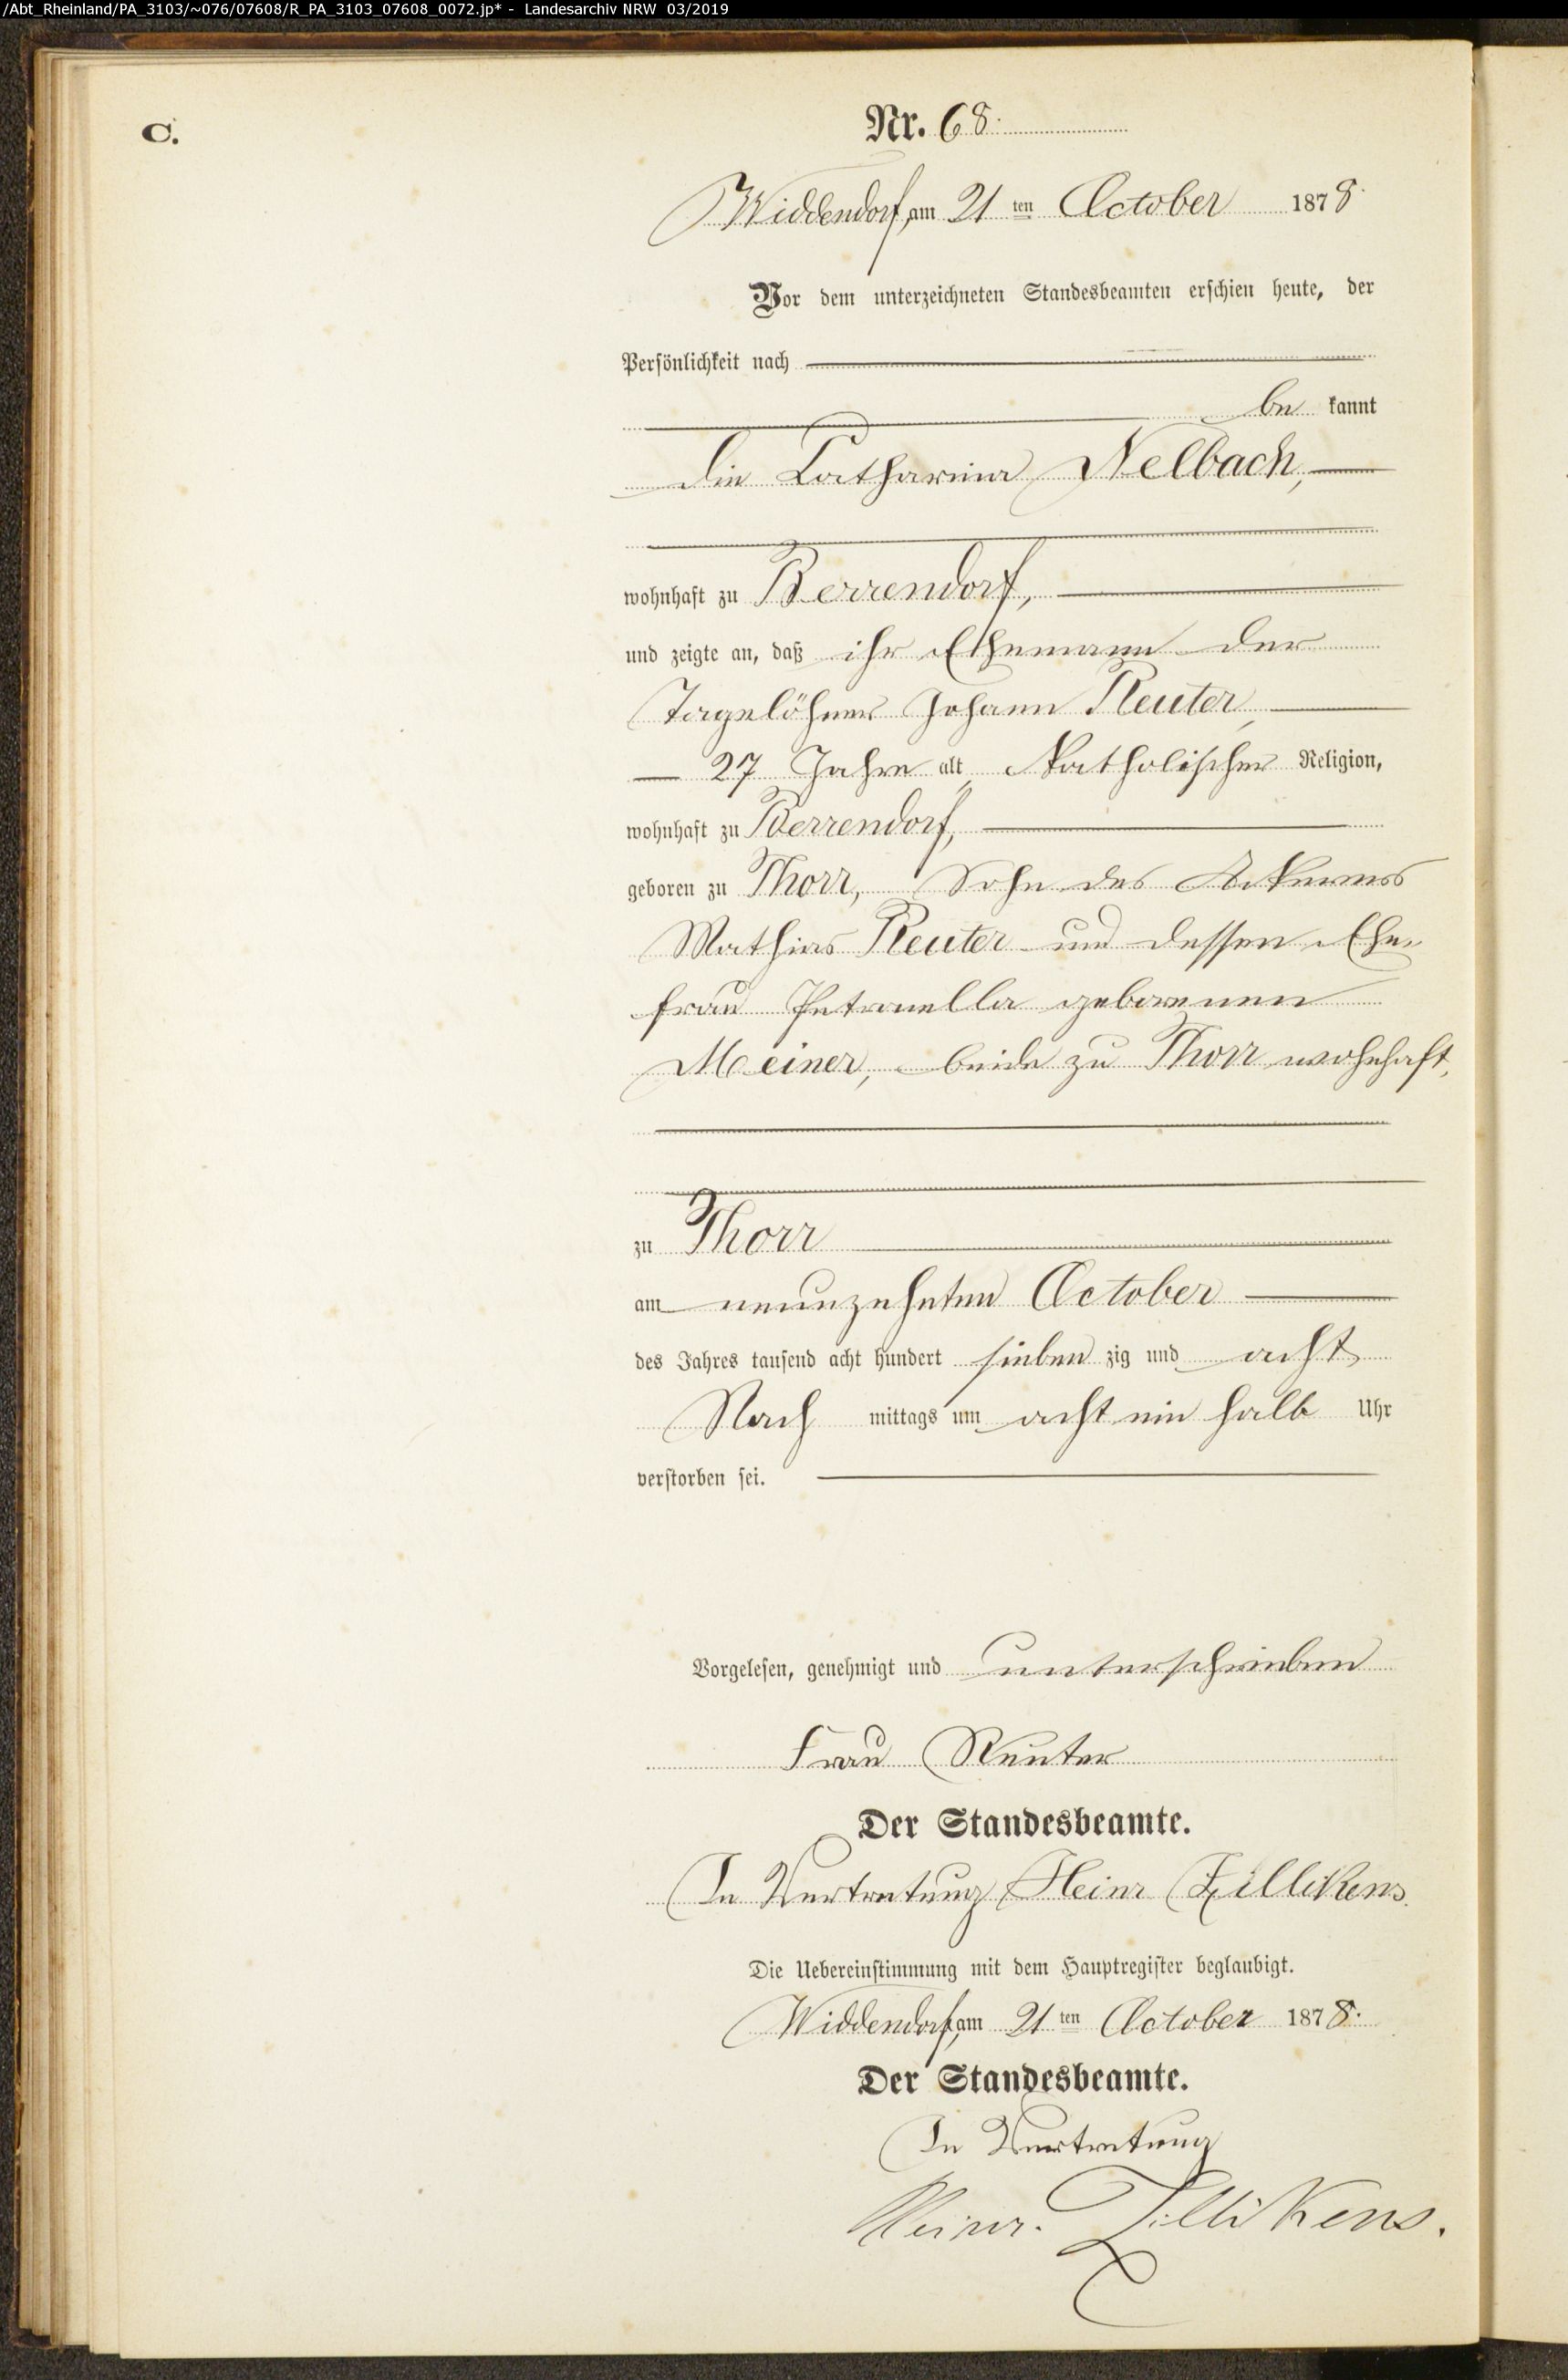 /Abt_Rheinland/PA_3103/~076/07608/R_PA_3103_07608_0072.jp* - Landesarchiv NRW 03/2019
C.
Nr. 68.
Widdendorf, am 21 ten October 1878.
Vor dem unterzeichneten Standesbeamten erschien heute, der
Persönlichkeit nach
be kannt
die Catharina Nelbach,
wohnhaft zu Berrendorf,
und zeigte an, daß ihr Ehemann der
Tagelöhner Johann Reuter,
27 Jahre alt, Katholischer Religion,
wohnhaft zu Berrendorf,
geboren zu Thorr, Sohn des Ackerers
Mathias Reuter und dessen Ehe-
frau Petronella geborenen
Meiner, beide zu Thorr wohnhaft,
zu Thorr
am neunzehnten October
des Jahres tausend acht hundert sieben zig und acht
Nach mittags um acht ein halb Uhr
verstorben sei.
Vorgelesen, genehmigt und unterschrieben
Frau Reuter
Der Standesbeamte.
In Vertretung Heinr Zillikens.
Die Uebereinstimmung mit dem Hauptregister beglaubigt.
Widdendorf, am 21 ten October 1878.
Der Standesbeamte.
In Vertretung
Heinr. Zillikens.